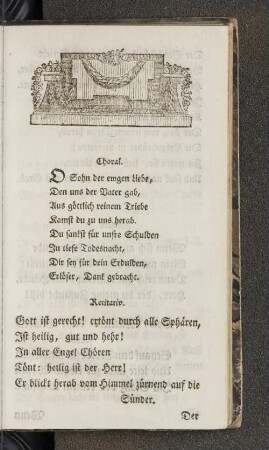 Choral.
O Sohn der ewgen liebe,
Den uns der Vater gab,
Aus göttlich reinem Triebe
Kamst du zu uns herab.
Du sankst für unsre Schulden
In tiefe Todesnacht,
Dir sey für dein Erdulden,
Erlöser, Dank gebracht.
Recitativ.
Gott ist gerecht! ertönt durch alle Sphären,
Ist heilig, gut und hehr!
In aller Engel Chören
Tönt: heilig ist der Herr!
Er blickt herab vom Himmel zürnend auf die
Sünder.
Der